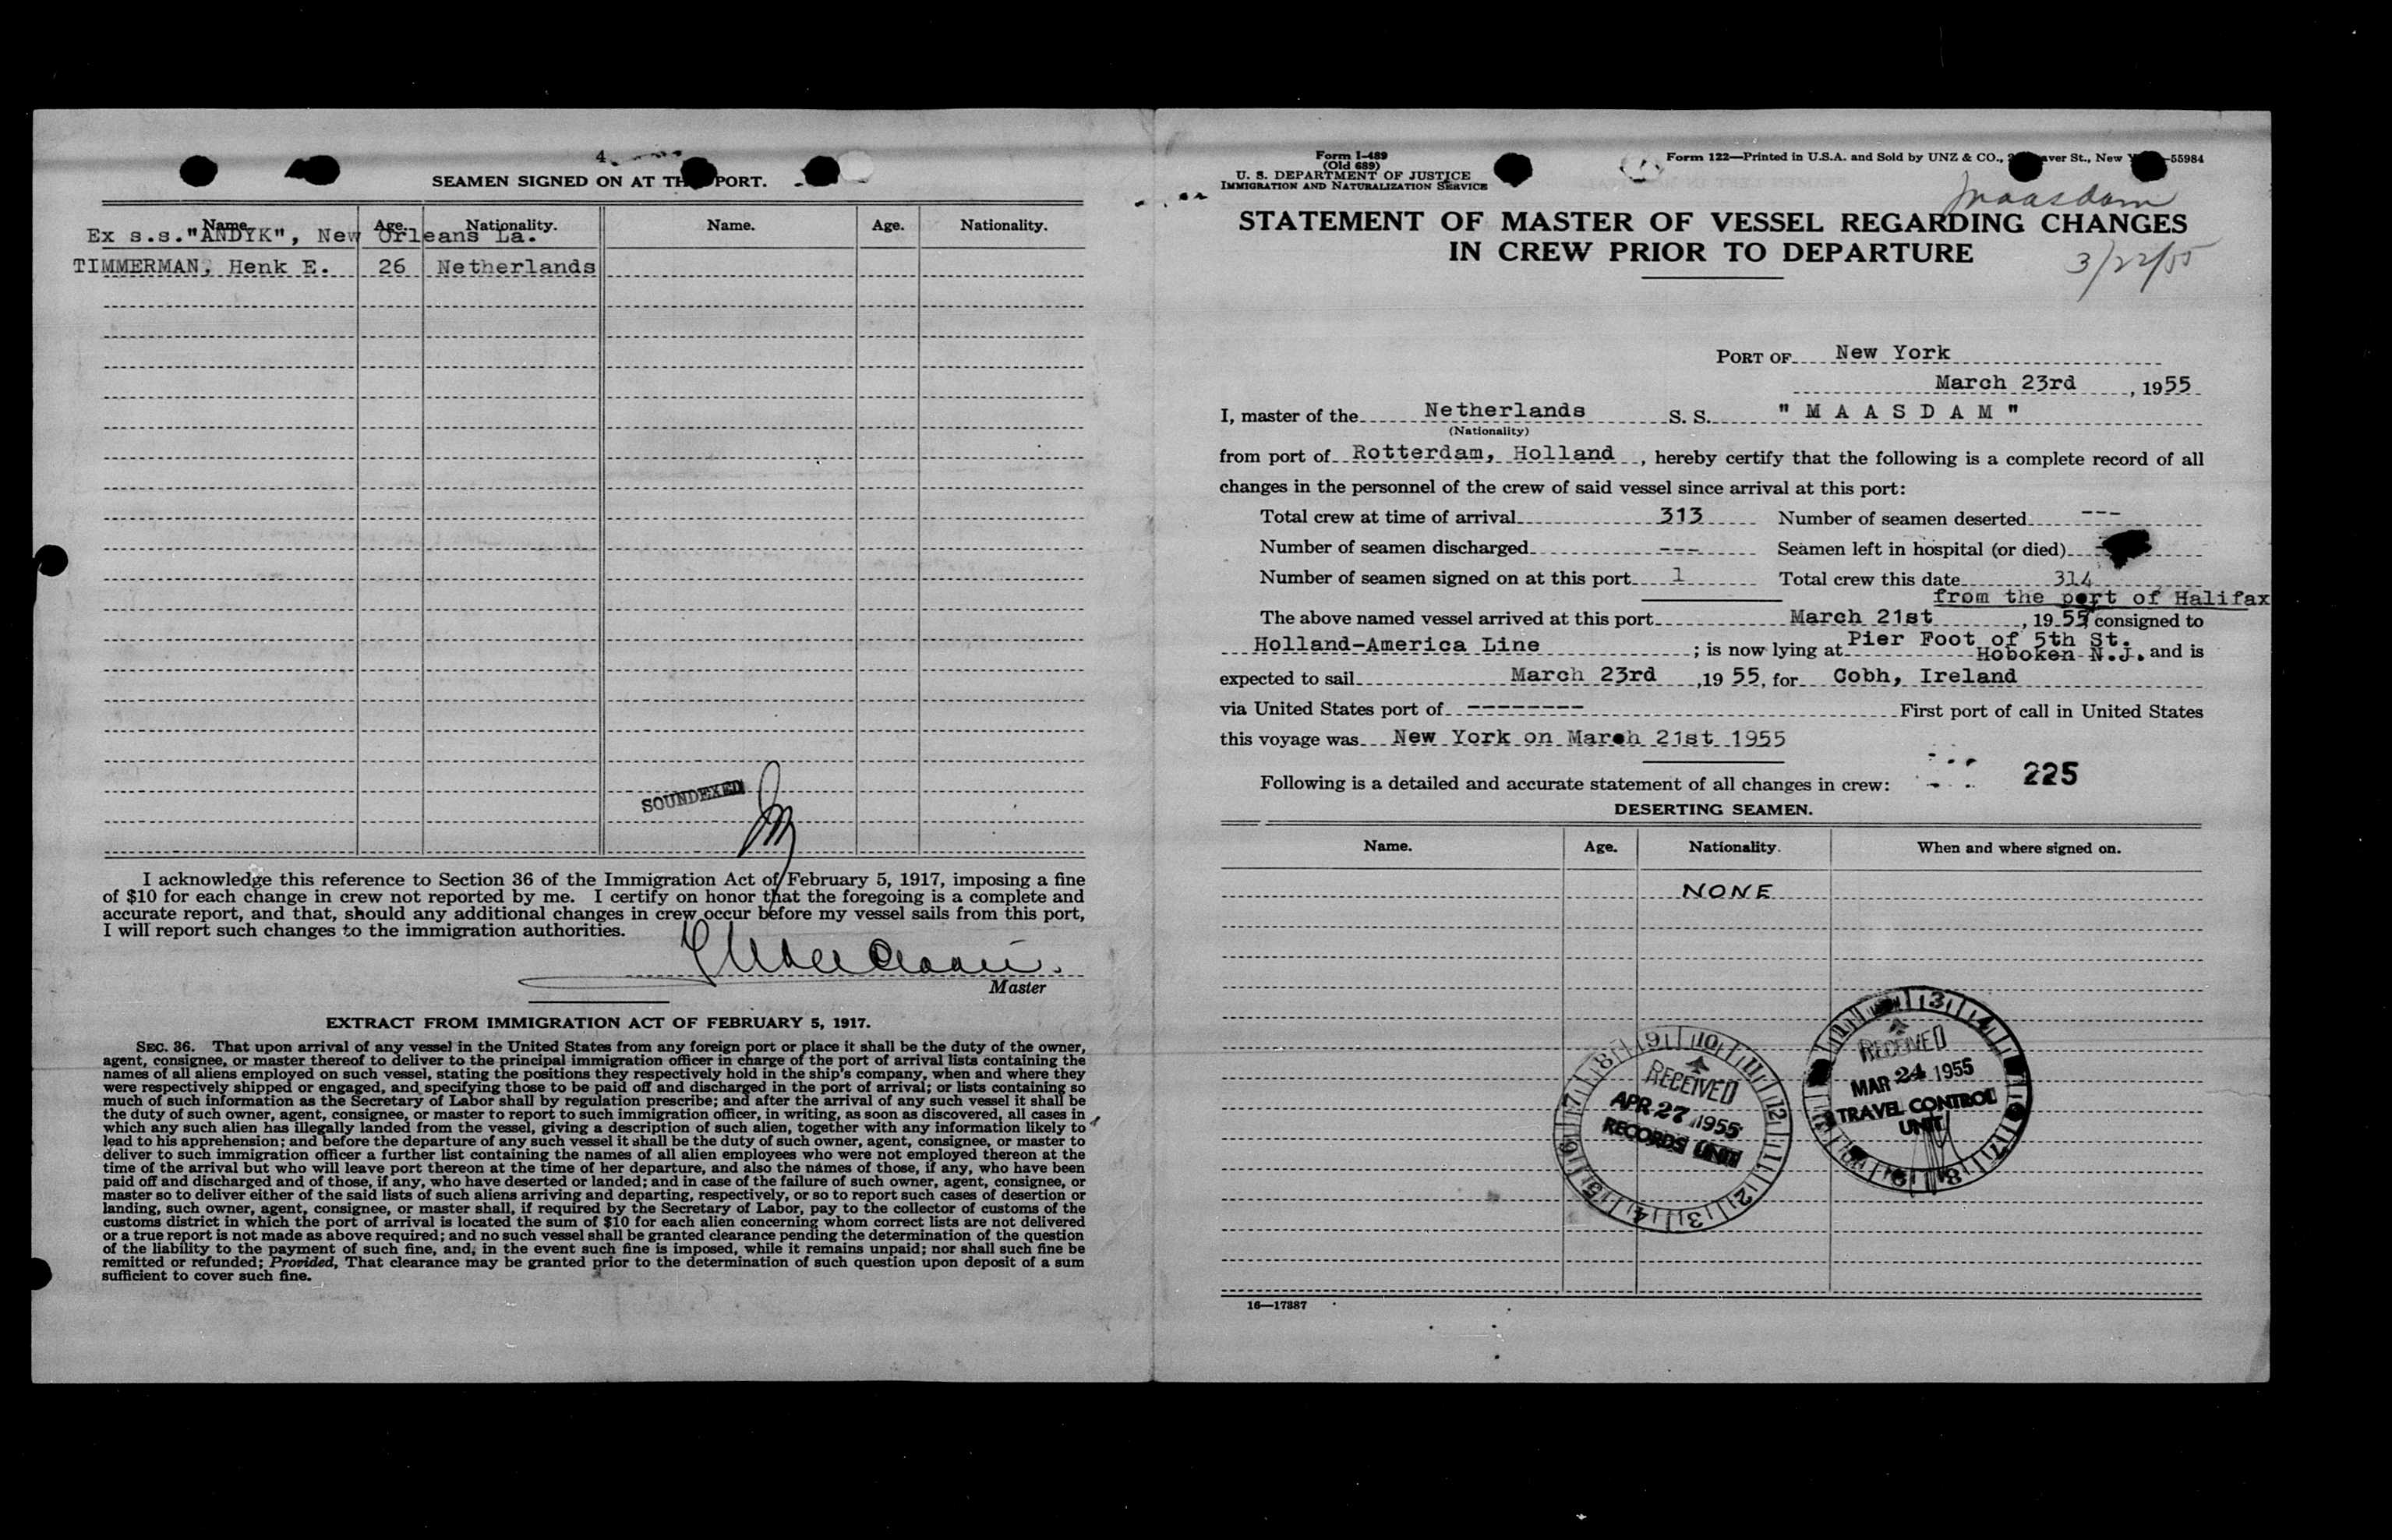 4
SEAMEN SIGNED ON AT TH PORT.
Name. Age. Nationality. Name. Age. Nationality.
Ex s.s."ANDYK", New Orleans La.
TIMMERMAN, Henk E. 26 Netherlands
SOUNDEXED
I acknowledge this reference to Section 36 of the Immigration Act of February 5, 1917, imposing a fine
of $10 for each change in crew not reported by me. I certify on honor that the foregoing is a complete and
accurate report, and that, should any additional changes in crew occur before my vessel sails from this port,
I will report such changes to the immigration authorities.
Master
EXTRACT FROM IMMIGRATION ACT OF FEBRUARY 5, 1917.
SEC. 36. That upon arrival of any vessel in the United States from any foreign port or place it shall be the duty of the owner,
agent, consignee, or master thereof to deliver to the principal immigration officer in charge of the port of arrival lists containing the
names of all aliens employed on such vessel, stating the positions they respectively hold in the ship's company, when and where they
were respectively shipped or engaged, and specifying those to be paid off and discharged in the port of arrival; or lists containing so
much of such information as the Secretary of Labor shall by regulation prescribe; and after the arrival of any such vessel it shall be
the duty of such owner, agent, consignee, or master to report to such immigration officer, in writing, as soon as discovered, all cases in
which any such alien has illegally landed from the vessel, giving a description of such alien, together with any information likely to
lead to his apprehension; and before the departure of any such vessel it shall be the duty of such owner, agent, consignee, or master to
deliver to such immigration officer a further list containing the names of all alien employees who were not employed thereon at the
time of the arrival but who will leave port thereon at the time of her departure, and also the names of those, if any, who have been
paid off and discharged and of those, if any, who have deserted or landed; and in case of the failure of such owner, agent, consignee, or
master so to deliver either of the said lists of such aliens arriving and departing, respectively, or so to report such cases of desertion or
landing, such owner, agent, consignee, or master shall, if required by the Secretary of Labor, pay to the collector of customs of the
customs district in which the port of arrival is located the sum of $10 for each alien concerning whom correct lists are not delivered
or a true report is not made as above required; and no such vessel shall be granted clearance pending the determination of the question
of the liability to the payment of such fine, and, in the event such fine is imposed, while it remains unpaid; nor shall such fine be
remitted or refunded; Provided, That clearance may be granted prior to the determination of such question upon deposit of a sum
sufficient to cover such fine.
Form I-489
(Old 689)
U. S. DEPARTMENT OF JUSTICE
IMMIGRATION AND NATURALIZATION SERVICE
Form 122—Printed in U.S.A. and Sold by UNZ & CO., aver St., New —55984
Maasdam
STATEMENT OF MASTER OF VESSEL REGARDING CHANGES
IN CREW PRIOR TO DEPARTURE
3/22/55
PORT OF New York
March 23rd, 1955
I, master of the Netherlands S. S. " M A A S D A M "
(Nationality)
from port of Rotterdam, Holland, hereby certify that the following is a complete record of all
changes in the personnel of the crew of said vessel since arrival at this port:
Total crew at time of arrival 313 Number of seamen deserted ---
Number of seamen discharged --- Seamen left in hospital (or died)
Number of seamen signed on at this port 1 Total crew this date 314
from the port of Halifax
The above named vessel arrived at this port March 21st, 1955 consigned to
Holland-America Line; is now lying at Pier Foot of 5th St. Hoboken N.J. and is
expected to sail March 23rd, 19 55, for Cobh, Ireland
via United States port of -------- First port of call in United States
this voyage was New York on March 21st 1955
Following is a detailed and accurate statement of all changes in crew: 225
DESERTING SEAMEN.
Name. Age. Nationality. When and where signed on.
NONE
RECEIVED
APR 27 1955
RECORDS UNIT
RECEIVED
MAR 24 1955
TRAVEL CONTROL
UNIT
16—17387